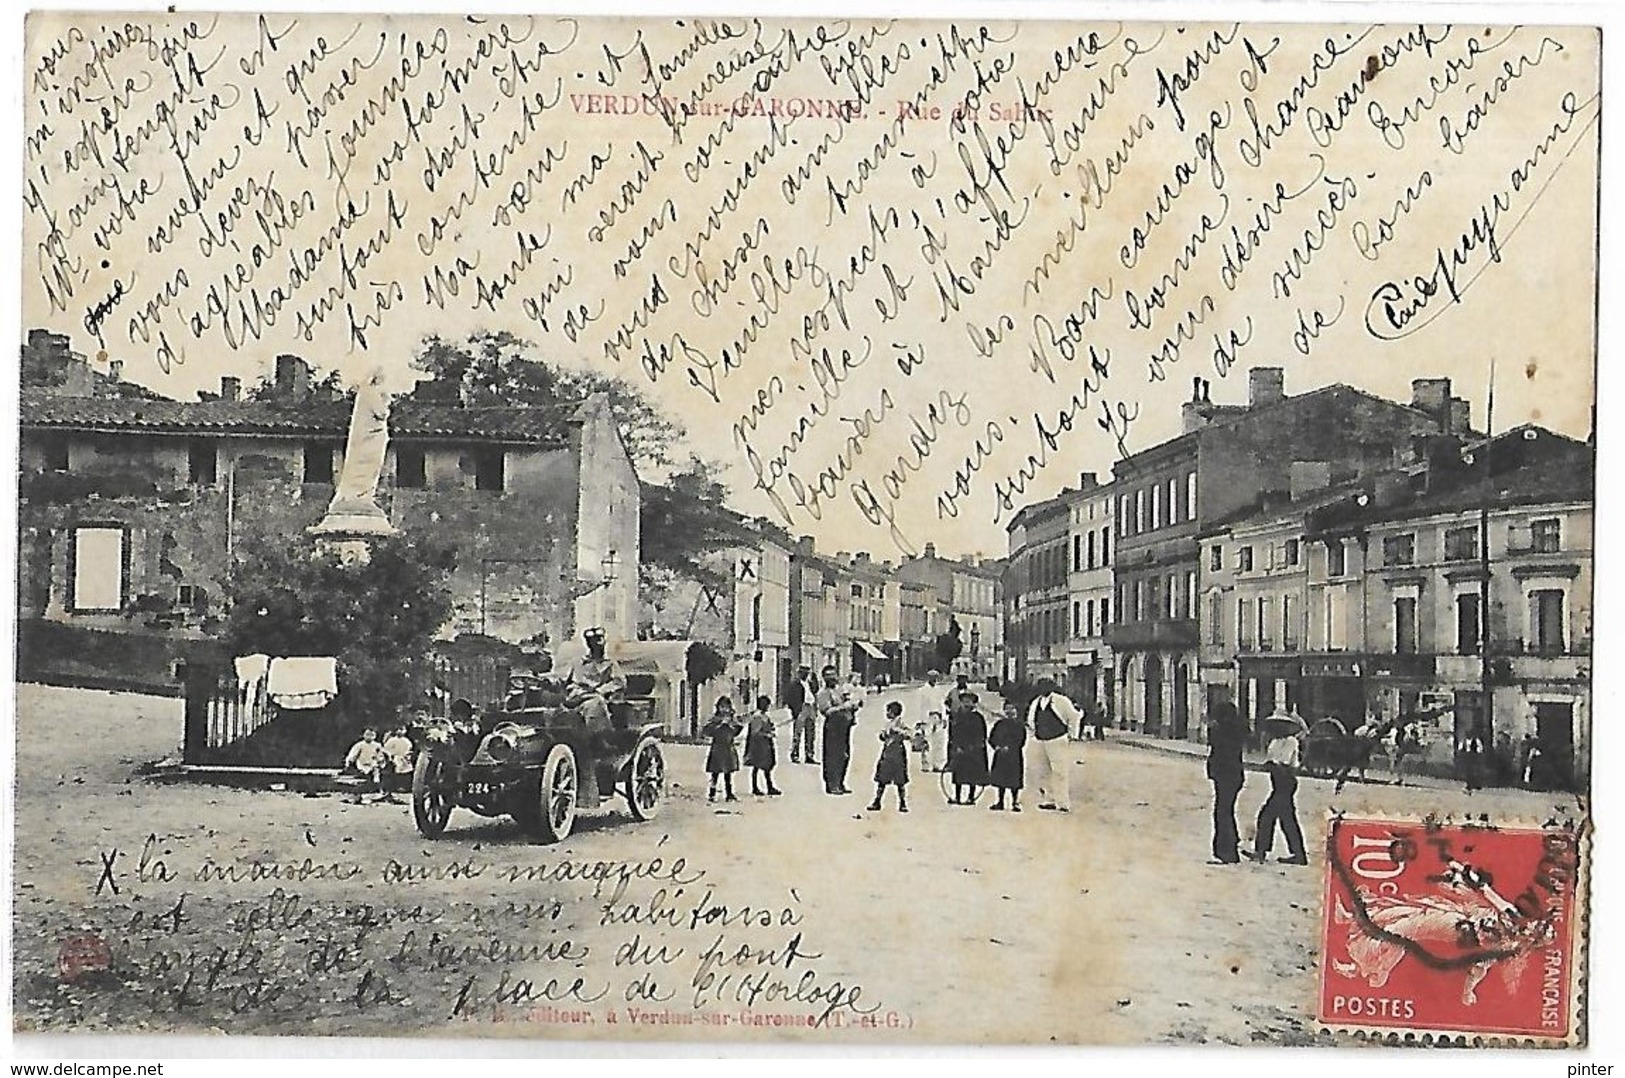 vous
m'inspirez
J'espère que
maintenant
Mr votre frère est
revenu et que
vous devez passer
d'agréables journées
Madame votre mère
surtout doit-être
très contente.
Ma sœur et
toute ma famille
qui serait heureuse
de vous connaître
vous envoient bien
des choses aimables.
Veuillez transmettre
mes respects, à votre
famille et d'affectueux
baisers à Marie-Louise.
Gardez les meilleurs pour
vous. Bon courage et
surtout bonne chance.
Je vous désire beaucoup
de succès. Encore
de bons baisers
Puyanne
VERDUN-sur-GARONNE. - Rue du
X
X
224-
X - la maison ainsi marquée
est celle que nous habitons à
l'angle de l'avenue du pont
et de la place de l'Horloge
éditeur, à Verdun-sur-Garonne (T.-et-G.)
10 c
POSTES
FRANÇAISE
pinterac